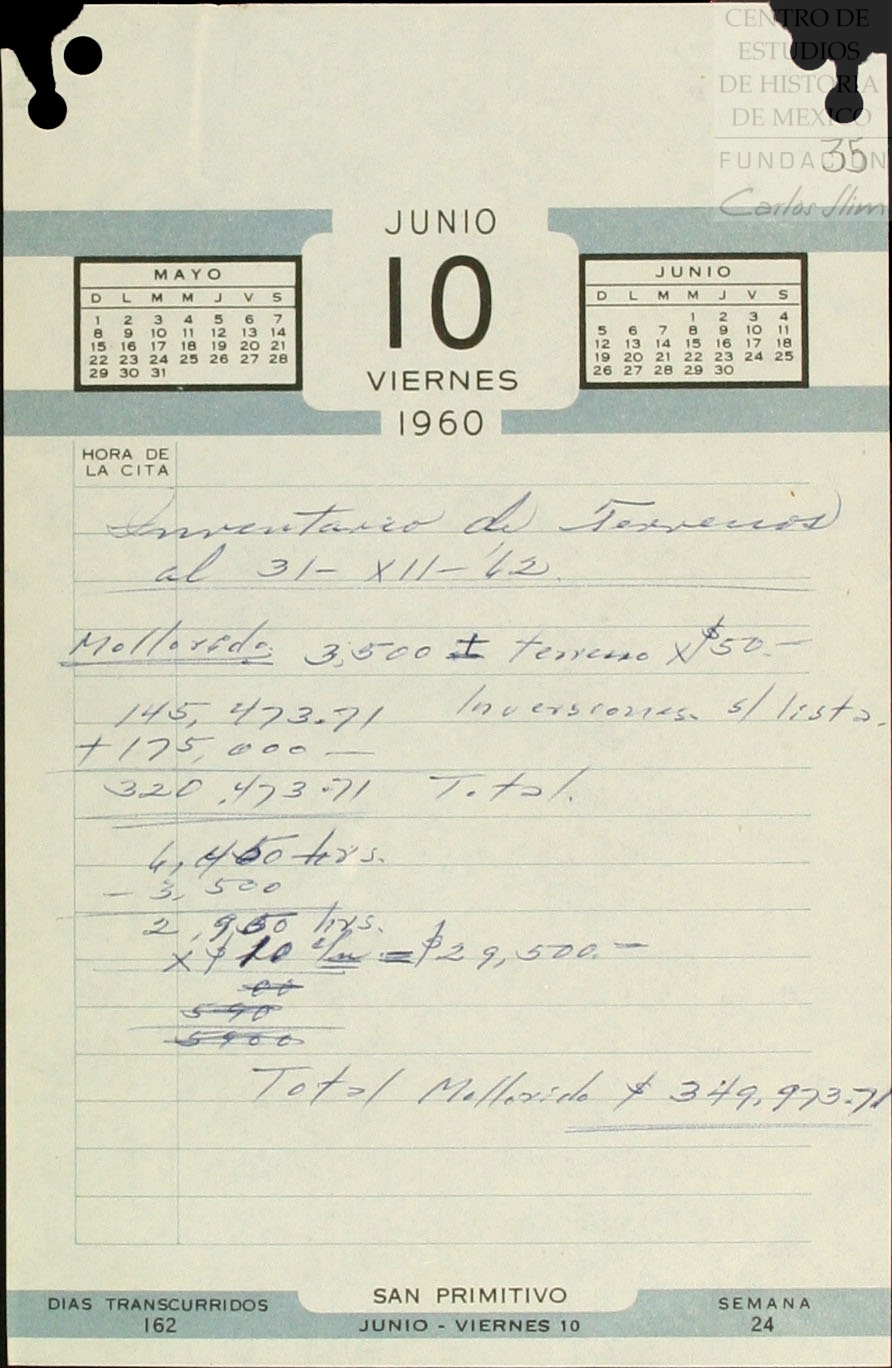 CENTRO DE
ESTUDIOS
DE HISTORIA
DE MEXICO
FUNDACIÓN
Carlos Slim
35
JUNIO
10
VIERNES
1960
MAYO
D L M M J V S
1 2 3 4 5 6 7
8 9 10 11 12 13 14
15 16 17 18 19 20 21
22 23 24 25 26 27 28
29 30 31
JUNIO
D L M M J V S
1 2 3 4
5 6 7 8 9 10 11
12 13 14 15 16 17 18
19 20 21 22 23 24 25
26 27 28 29 30
HORA DE
LA CITA
Inventario de Terrenos
al 31- XII- '62.
Mollorido. 3,500 ± terreno x $50.-
145,473.71 Inversiones s/ lista.
+175,000 —
320,473.71 Total.
6,450 hrs.
- 3,500
2,950 hrs.
x $10 = $29,500.-
00
590
5900
Total Mollorido $ 349,973.71
DIAS TRANSCURRIDOS
162
SAN PRIMITIVO
JUNIO - VIERNES 10
SEMANA
24